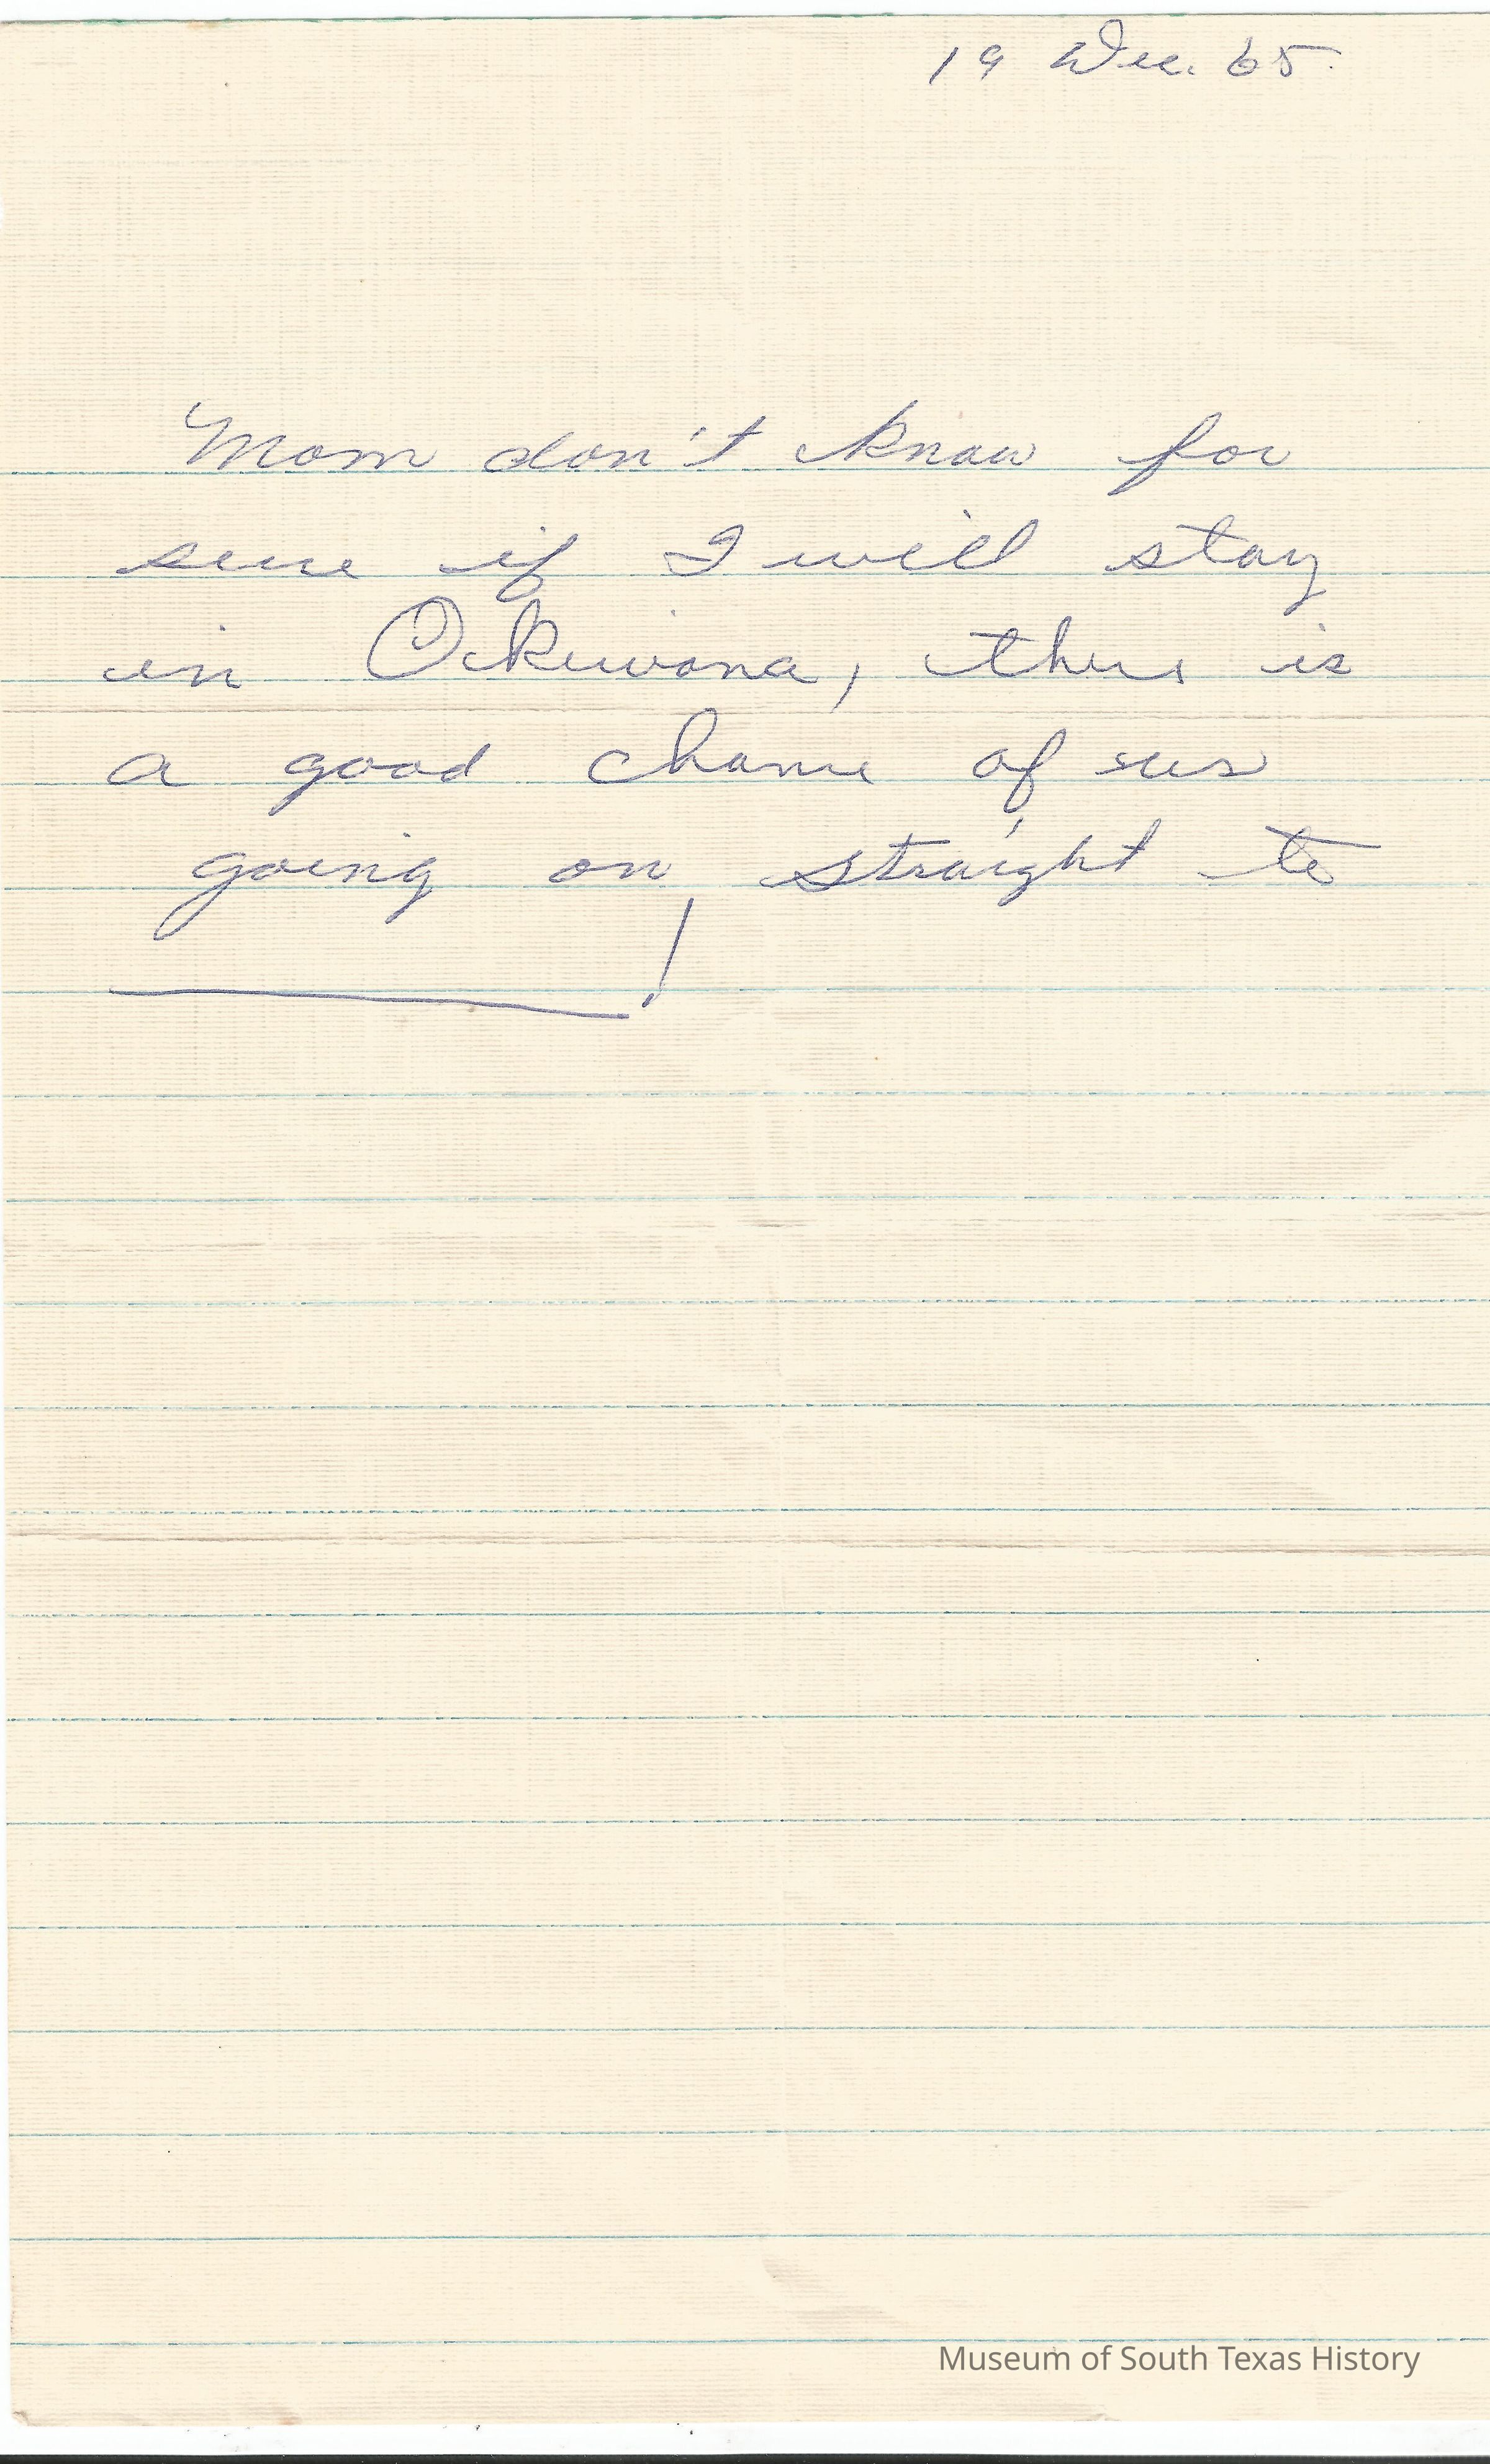 19 Dec. 65.
Mom don't know for
sure if I will stay
in Okiwana, there is
a good chance of us
going on straight to
______!
Museum of South Texas History